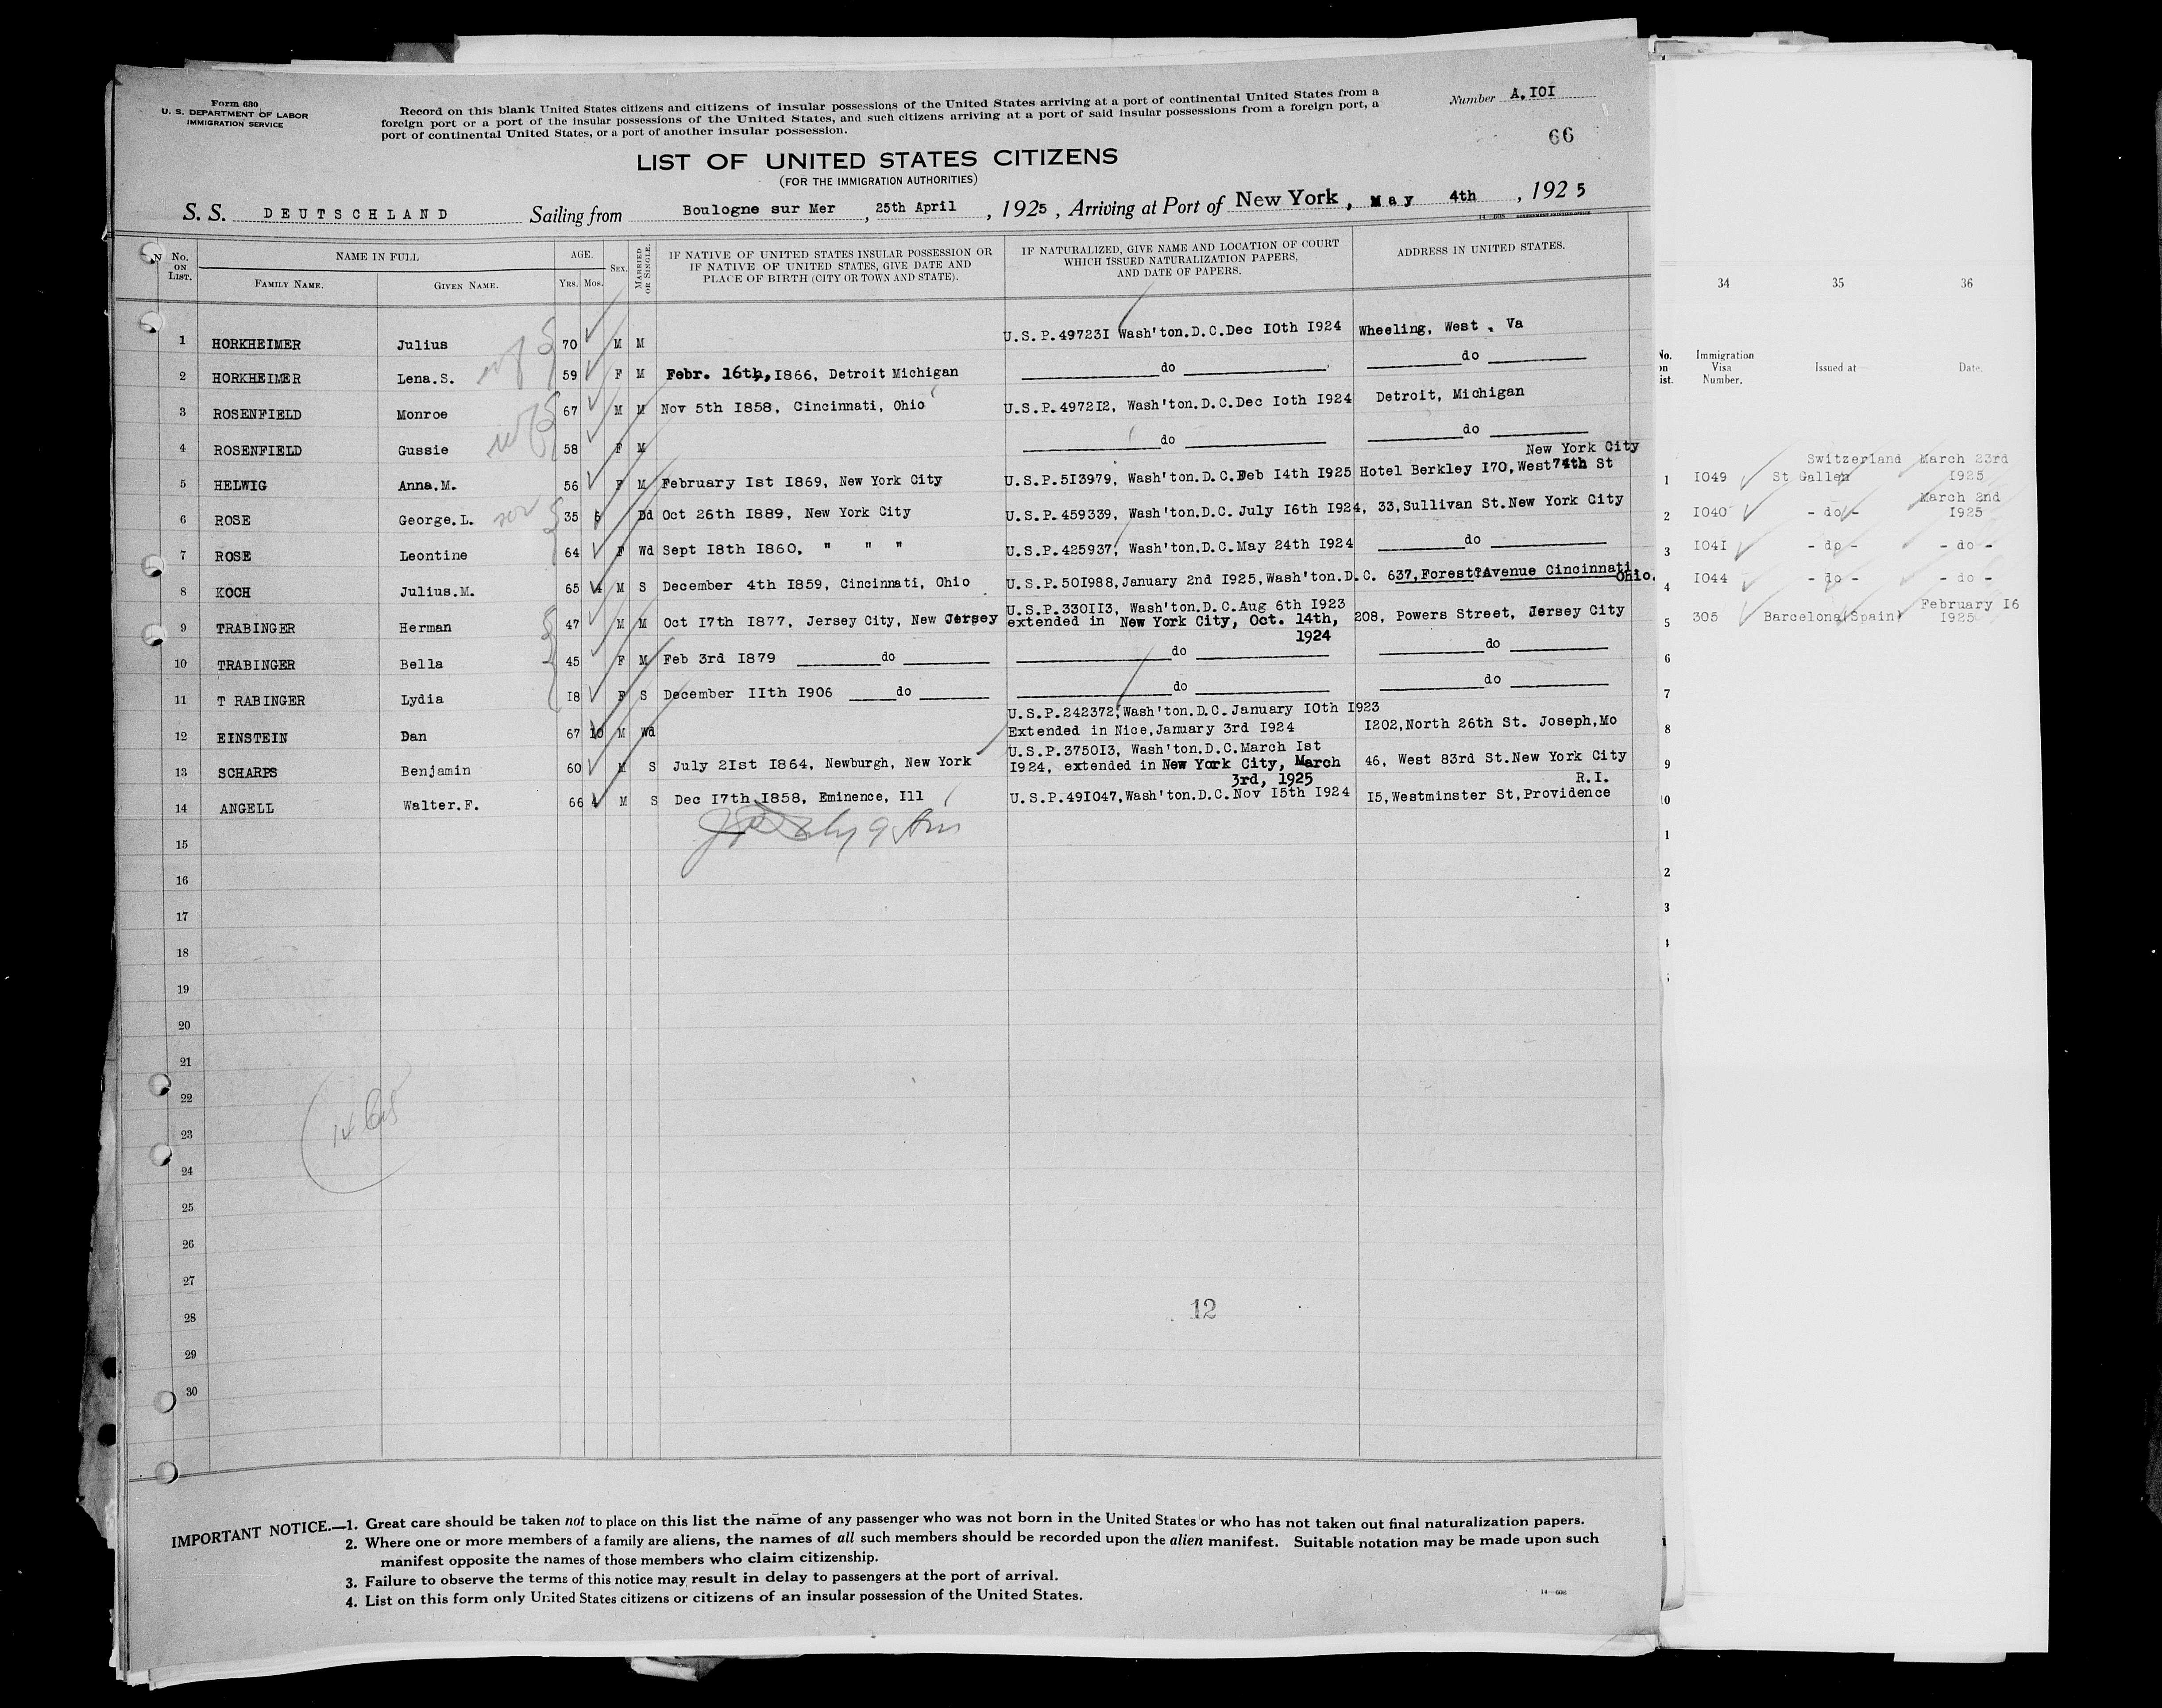 Form 630
U. S. DEPARTMENT OF LABOR
IMMIGRATION SERVICE
Record on this blank United States citizens and citizens of insular possessions of the United States arriving at a port of continental United States from a
foreign port or a port of the insular possessions of the United States, and such citizens arriving at a port of said insular possessions from a foreign port, a
port of continental United States, or a port of another insular possession.
Number A.IOI
66
LIST OF UNITED STATES CITIZENS
(FOR THE IMMIGRATION AUTHORITIES)
S. S. DEUTSCHLAND Sailing from Boulogne sur Mer, 25th April, 1925, Arriving at Port of New York, May 4th, 1925
14-608 GOVERNMENT PRINTING OFFICE
No. ON LIST. NAME IN FULL AGE. SEX. MARRIED OR SINGLE. IF NATIVE OF UNITED STATES INSULAR POSSESSION OR IF NATIVE OF UNITED STATES, GIVE DATE AND PLACE OF BIRTH (CITY OR TOWN AND STATE). IF NATURALIZED, GIVE NAME AND LOCATION OF COURT WHICH ISSUED NATURALIZATION PAPERS, AND DATE OF PAPERS. ADDRESS IN UNITED STATES.
FAMILY NAME. GIVEN NAME. YRS. MOS.
1 HORKHEIMER Julius 70 M M U.S.P.49723I Wash'ton.D.C.Dec IOth I924 Wheeling, West . Va
2 HORKHEIMER Lena.S. 59 F M Febr. 16th, I866, Detroit Michigan do do
3 ROSENFIELD Monroe 67 M M Nov 5th I858, Cincinnati, Ohio U.S.P.4972I2, Wash'ton.D.C.Dec Ioth I924 Detroit, Michigan
4 ROSENFIELD Gussie 58 F M do do
New York City
5 HELWIG Anna.M. 56 F M February Ist I869, New York City U.S.P.5I3979, Wash'ton.D.C.Feb I4th I925 Hotel Berkley I70, West 74th St
6 ROSE George.L. 35 6 Dd Oct 26th I889, New York City U.S.P.459339, Wash'ton.D.C. July I6th I924, 33,Sullivan St.New York City
7 ROSE Leontine 64 F Wd Sept I8th I860, " " " U.S.P.425937, Wash'ton.D.C.May 24th I924 do
8 KOCH Julius.M. 65 4 M S December 4th I859, Cincinnati, Ohio U.S.P.50I988,January 2nd I925,Wash'ton.D.C. 637,Forest?Avenue Cincinnati Ohio.
9 TRABINGER Herman 47 M M Oct I7th I877, Jersey City, New Jersey U.S.P.330II3, Wash'ton.D.C.Aug 6th I923 208, Powers Street, Jersey City
extended in New York City, Oct. 14th,
1924
10 TRABINGER Bella 45 F M Feb 3rd I879 do do do
11 T RABINGER Lydia I8 F S December IIth I906 do do do
U.S.P.242372,Wash'ton.D.C.January IOth I923
12 EINSTEIN Dan 67 10 M Wd Extended in Nice,January 3rd I924 I202,North 26th St. Joseph,Mo
U.S.P.3750I3, Wash'ton.D.C.March Ist
13 SCHARPS Benjamin 60 M S July 2Ist I864, Newburgh, New York I924, extended in New York City, March 46, West 83rd St.New York City
3rd, 1925 R.I.
14 ANGELL Walter.F. 66 4 M S Dec I7th I858, Eminence, Ill U.S.P.49I047,Wash'ton.D.C.Nov I5th I924 I5,Westminster St,Providence
15
16
17
18
19
20
21
22
23
24
25
26
27
28
29
30
12
IMPORTANT NOTICE.—1. Great care should be taken not to place on this list the name of any passenger who was not born in the United States or who has not taken out final naturalization papers.
2. Where one or more members of a family are aliens, the names of all such members should be recorded upon the alien manifest. Suitable notation may be made upon such
manifest opposite the names of those members who claim citizenship.
3. Failure to observe the terms of this notice may result in delay to passengers at the port of arrival.
4. List on this form only United States citizens or citizens of an insular possession of the United States.
14-608
34 35 36
No. on list. Immigration Visa Number. Issued at Date.
Switzerland March 23rd
1 I049 St Gallen I925
March 2nd
2 I040 - do - I925
3 I04I - do - - do -
4 I044 - do - - do -
February I6
5 305 Barcelona(Spain) I925
6
7
8
9
10
1
2
3